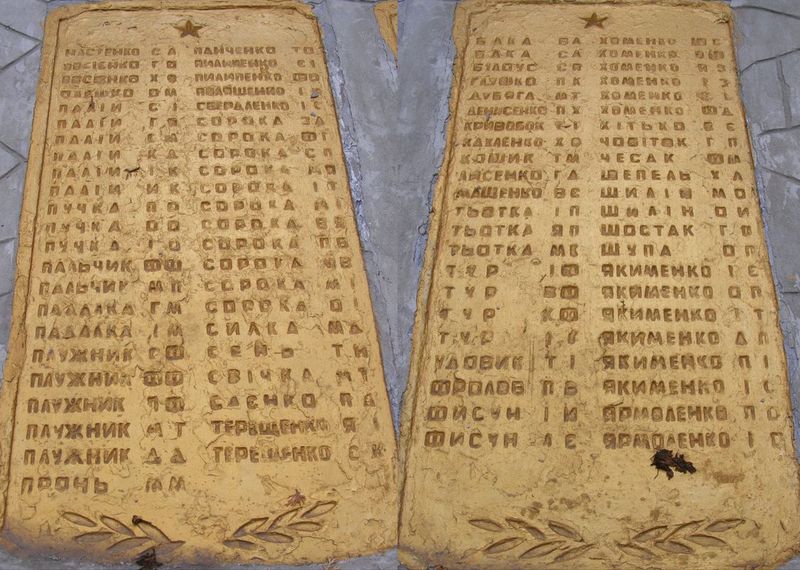 НАСТЕНКО С А
ОВСІЄНКО Г О
ОВСІЄНКО Х О
О М
ПАЛІЙ С І
ПАЛІЙ Г Я
ПАЛІЙ
ПАЛІЙ К Д
ПАЛІЙ І К
ПАЛІЙ И К
ПУЧКА П О
ПУЧКА Д О
ПУЧКА І О
ПАЛЬЧИК Ф Ф
ПАЛЬЧИК М П
ПАДАЛКА Г М
ПАДАЛКА І М
ПЛУЖНИК С Ф
ПЛУЖНИК Ф Ф
ПЛУЖНИК П Ф
ПЛУЖНИК М Т
ПЛУЖНИК Д Д
ПРОНЬ М М
ПАНЧЕНКО Т О
ПИЛИПЕНКО Є І
ПИЛИПЕНКО Ф О
ПОЛОЩЕНКО І
СВЕРДЛЕНКО І С
СОРОКА
СОРОКА
СОРОКА С П
СОРОКА М О
СОРОКА І Т
СОРОКА М Т
СОРОКА
СОРОКА П Б
СОРОКА
СОРОКА М І
СОРОКА О І
СИЛКА М Д
СЕНЬ Т Н
СВІЧКА М Т
ЄДЄНКО П Д
ТЕРЕЩЕНКО Я І
ТЕРЕЩЕНКО Є Н
БАКА В А
БАКА С А
БІЛОУС С Я
ГЛУШКО П К
ДУБОГА М Т
ДЕНИСЕНКО П Х
КРИВОБОК Т І
КАХЛЕНКО Х О
КОШИК Т М
ЛИСЕНКО Г Д
МАЩЕНКО В Є
ТЬОТКА І П
ТЬОТКА Я П
ТЬОТКА М К
ТУР І Ф
ТУР В Ф
ТУР К Ф
ТУР І К
УДОВИК Т І
ФРОЛОВ П В
ФИСУН І И
ФИСУН І Є
ХОМЕНКО
ХОМЕНКО
ХОМЕНКО
ХОМЕНКО
ХОМЕНКО
ХОМЕНКО Ф Д
ХІТЬКО В Є
ЧОБІТОК Г П
ЧЕСАК Ф М
ШЕПЕЛЬ Х Л
ШИЛІН М О
ШИЛІН О И
ШОСТАК Г П
ШУПА О П
ЯКИМЕНКО І Є
ЯКИМЕНКО О П
ЯКИМЕНКО І Т
ЯКИМЕНКО Д П
ЯКИМЕНКО П І
ЯКИМЕНКО І С
ЯРМОЛЕНКО П О
ЯРМОЛЕНКО І С